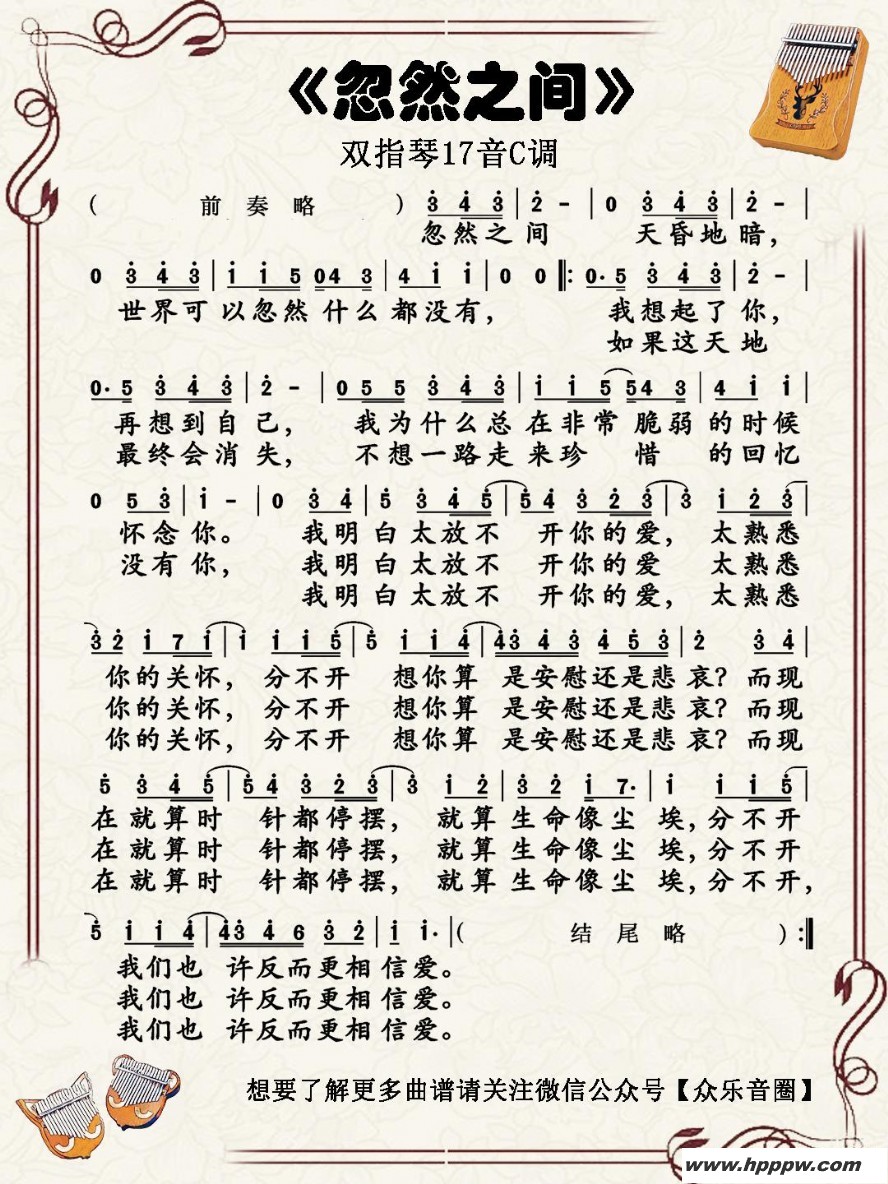 《忽然之间》
双指琴17音C调
( 前奏略 ) 3 4 3 | 2 - | 0 3 4 3 | 2 - |
忽然之间 天昏地暗，
0 3 4 3 | i i 5 04 3 | 4 i i | 0 0 ‖: 0· 5 3 4 3 | 2 - |
世界可以忽然什么都没有， 我想起了你，
如果这天地
0· 5 3 4 3 | 2 - | 0 5 5 3 4 3 | i i 5 5 4 3 | 4 i i |
再想到自己， 我为什么总在非常脆弱的时候
最终会消失， 不想一路走来珍惜的回忆
0 5 3 | i - | 0 3 4 | 5 3 4 5 | 5 4 3 2 3 | 3 i 2 3 |
怀念你。 我明白太放不开你的爱，太熟悉
没有你， 我明白太放不开你的爱 太熟悉
我明白太放不开你的爱，太熟悉
3 2 i 7 i | i i i 5 | 5 i i 4 | 4 3 4 3 4 5 3 | 2 3 4 |
你的关怀，分不开 想你算是安慰还是悲哀？而现
你的关怀，分不开 想你算是安慰还是悲哀？而现
你的关怀，分不开 想你算是安慰还是悲哀？而现
5 3 4 5 | 5 4 3 2 3 | 3 i 2 | 3 2 i 7· | i i i 5 |
在就算时针都停摆，就算生命像尘埃，分不开
在就算时针都停摆，就算生命像尘埃，分不开
在就算时针都停摆，就算生命像尘埃，分不开，
5 i i 4 | 4 3 4 6 3 2 | i i· ( 结尾略 ) :‖
我们也许反而更相信爱。
我们也许反而更相信爱。
我们也许反而更相信爱。
想要了解更多曲谱请关注微信公众号【众乐音圈】
www.hpppw.com